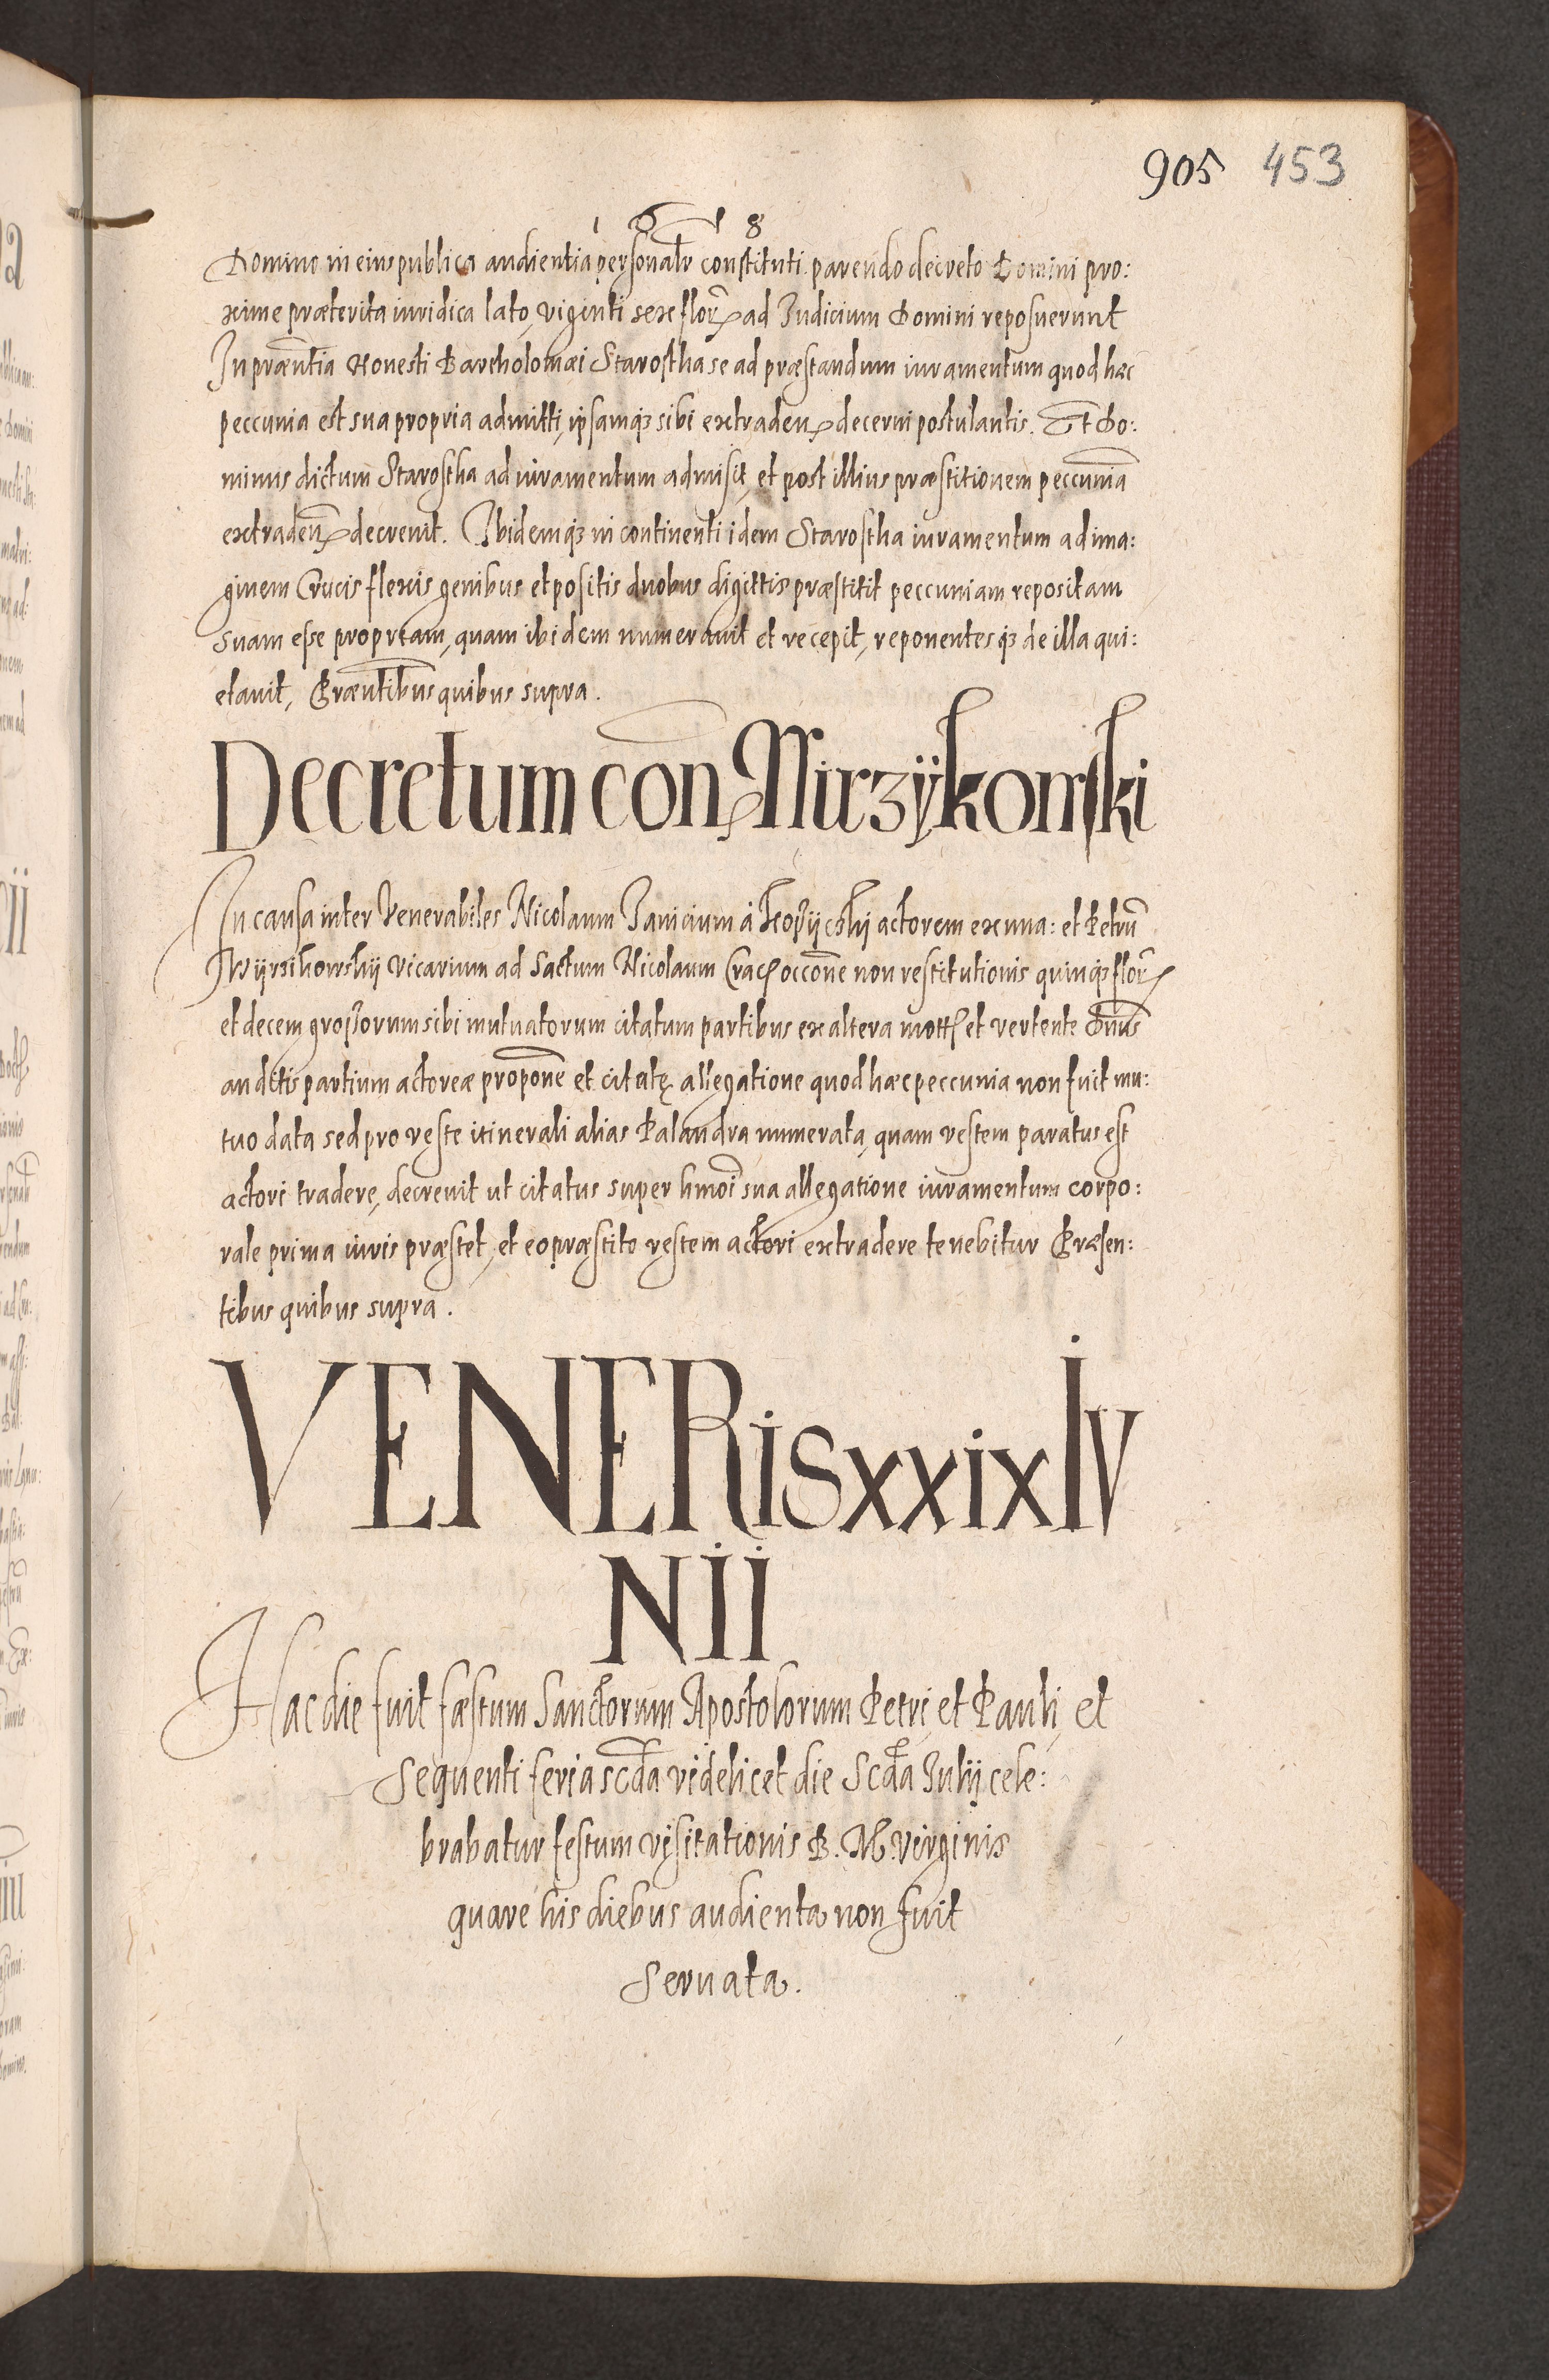 905 453
1 8
Domino in eius publica audientia personalr constituti parendo decreto Domini pro:
xime præterita iuridica lato, viginti sex flor ad Iudicium Domini reposuerunt
In præntia Honesti Bartholomæi Starostha se ad præstandum iuramentum quod hæc
peccunia est sua propria admitti, ipsamq; sibi extraden decerni postulantis. Et Do:
minus dictum Starostha ad iuramentum admisit, et post illius præstitionem peccunia
extraden decrevit. Ibidemq; in continenti idem Starostha iuramentum ad ima:
ginem Crucis flexis genibus et positis duobus digittis præstitit peccuniam repositam
suam esse propriam, quam ibidem numeravit et recepit, reponentesq; de illa qui:
etavit, Præntibus quibus supra.
Decretum con Mirzÿkowski
In causa inter Venerabiles Nicolaum Janicium à actorem ex una: et Petrũ
Wÿrsikowskij Vicarium ad Sactum Nicolaum Crac occone non restitutionis quinq; flor
et decem grossorum sibi mutuatorum citatum partibus ex altera mott et vertente Dnus
auditis partium actoreæ propone et citatę allegatione quod hæc peccunia non fuit mu:
tuo data sed pro veste itinerali alias Palandra numerata, quam vestem paratus est
actori tradere, decrevit ut citatus super hmoi sua allegatione iuramentum corpo:
rale prima iuris præstet, et eo præstito vestem actori extradere tenebitur Præsen:
tibus quibus supra.
VENERis xxix IV
Nii
Hac die fuit fæstum Sanctorum Apostolorum Petri et Pauli, et
sequenti feria scda videlicet die Scda Iulij cele:
brabatur festum Visitationis B. M. Virginis
quare his diebus audienta non fuit
servata.